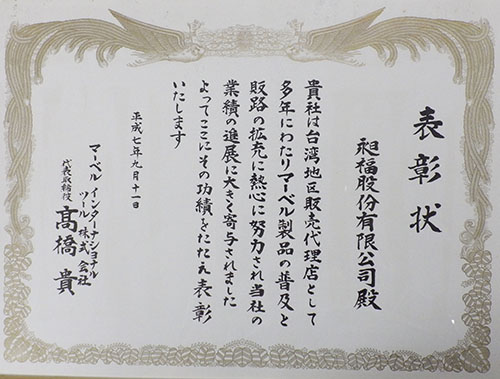 表彰状
昶福股份有限公司殿
貴社は台湾地区販売代理店として
多年にわたりマーベル製品の普及と
販路の拡充に熱心に努力され当社の
業績の進展に大きく寄与されました
よってここにその功績をたたえ表彰
いたします
平成七年九月十一日
マーベル インターナショナル
ツール 株式会社
代表取締役
髙橋 貴